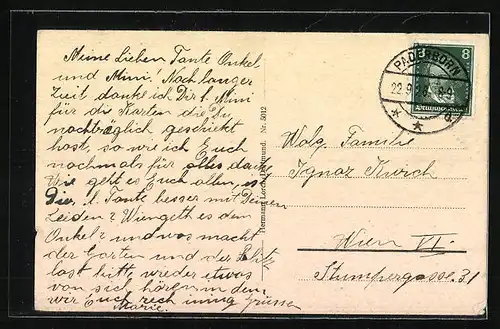 Meine Lieben Tante Onkel
und Mini! Nach langer
Zeit danke ich Dir l. Mini
für die Karten die Du
nachträglich geschickt
hast, so wie ich Euch
nochmals für alles danke
Wie geht es Euch allen, ist
Dir, l. Tante besser mit Deinen
Leiden? Wie geht es dem
Onkel? und was macht
der Garten und der
lasst bitte wieder etwas
von sich hören in dem
wir Euch recht innig Grüssen
Marie.
Hermann Lorch, Dortmund. Nr. 5012
8 8
PADERBORN
22.9. 8-9
Wolg. Familie
Ignaz
Wien VI.
Stumpergasse 31